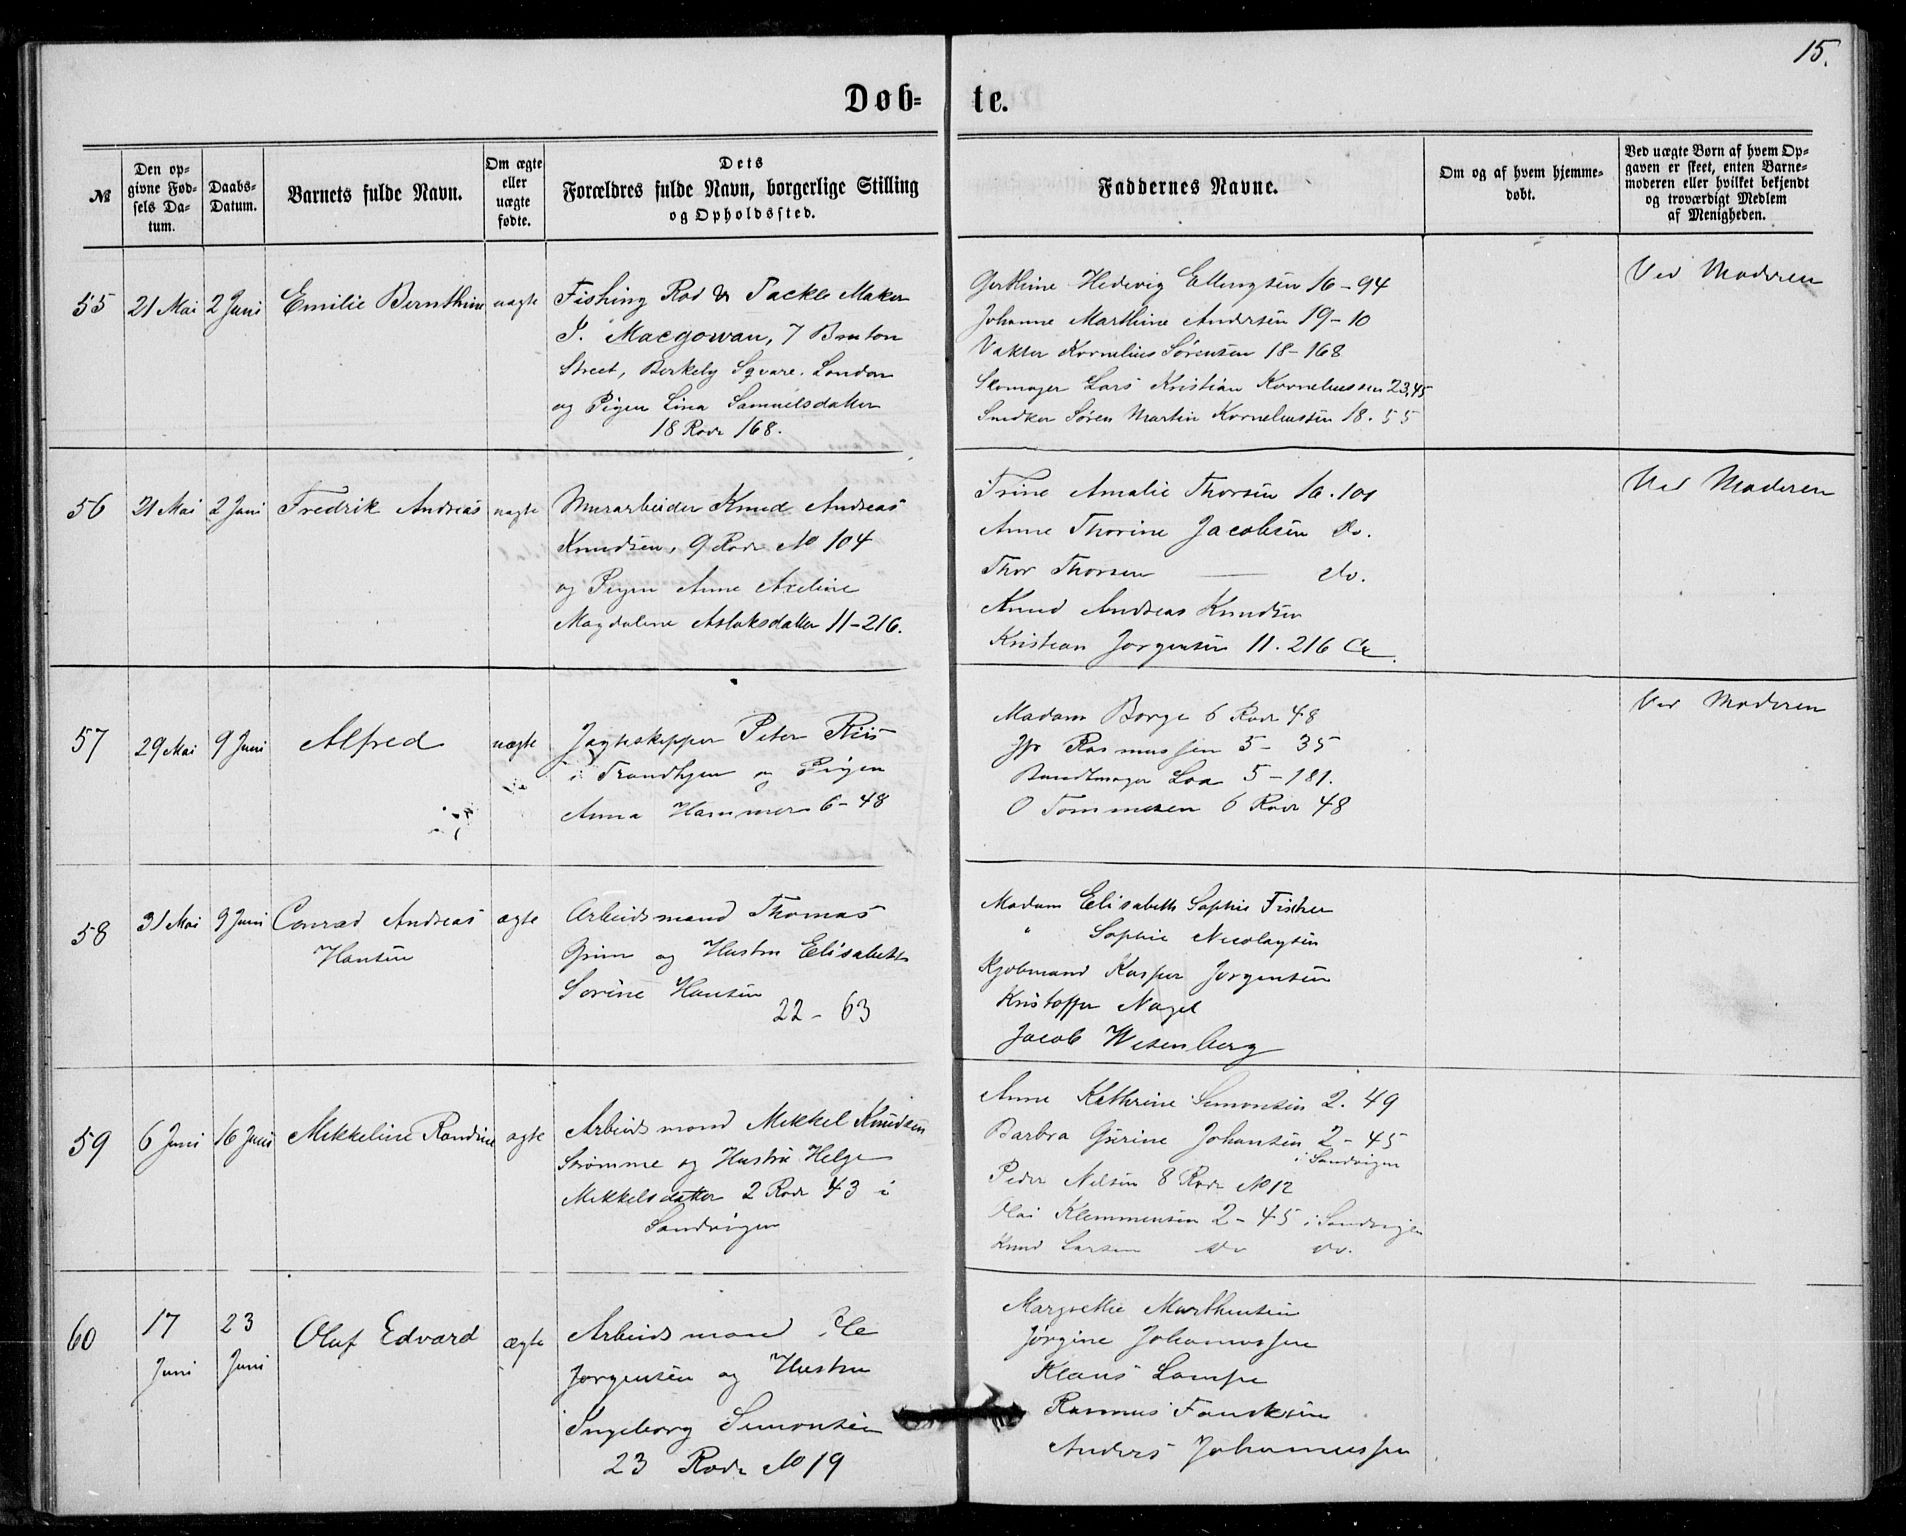 15.
Døb- te.
№
Den opgivne Fødsels Datum.
Daabs-Datum.
Barnets fulde Navn.
Om ægte eller uægte fødte.
Dets Forældres fulde Navn, borgerlige Stilling og Opholdssted.
Faddernes Navne.
Om og af hvem hjemmedøbt.
Ved uægte Børn af hvem Opgaven er skeet, enten Barnemoderen eller hvilket bekjendt og troværdigt Medlem af Menigheden.
55 21 Mai 2 Juni Emilie Bernthine uægte
Fishing Rod & Tackle Maker
J. Macgowan, 7 Bruton
Street, Berkely Sqvare. London
og Pigen Lina Samuelsdatter
18 Rode 168.
Gerthine Hedevig Ellingsen 16-94
Johanne Marthine Andersen 19-10
Vakter Kornelius Sørensen 18-168
Skomager Lars Kristian Korneliussen 23,45
Snedker Søren Martin Korneliussen 18.55
Ved Moderen
56 21 Mai 2 Juni Fredrik Andreas uægte
Murarbeider Knud Andreas
Knudsen, 9 Rode No 104
og Pigen Anne Axeline
Magdalene Aslaksdatter 11-216.
Trine Amalie Thorsen 16.101
Anne Thorine Jacobsen do.
Thor Thorsen — do.
Knud Andreas Knudsen
Kristian Jørgensen 11.216
Ved Moderen
57 29 Mai 9 Juni Alfred uægte
Jagteskipper Peter Riis
i Trondhjem og Pigen
Anna Hammer 6-48
Madam Borge 6 Rode 48
Jfr Rasmussen 5-35
Bundtmager Loa 5-181.
O Tommesen 6 Rode 48
Ved Moderen
58 31 Mai 9 Juni Conrad Andreas ægte
Hansen
Arbeidsmand Thomas
Grim og Hustru Elisabeth
Sorine Hansen
22-63
Madam Elisabeth Sophie Fischer
" Sophie Nicolaysen
Kjøbmand Kasper Jørgensen
Kristoffer Nagel
Jacob Wesenberg
59 6 Juni 16 Juni Mikkeline Randine ægte
Arbeidsmand Mikkel Knudsen
Strømme og Hustru Helge
Mikkelsdatter 2 Rode 43 i
Sandvigen
Anne Kathrine Simonsen 2.49
Barbra Gurine Johansen 2-45
i Sandvigen
Peder Nilsen 8 Rode No 12
Olai Klemmensen 2-45 i Sandvigen
Knud Larsen do do.
60 17 Juni 23 Juni Oluf Edvard ægte
Arbeidsmand Ole
Jørgensen og Hustru
Ingeborg Simonsen
23 Rode No 19
Margrethe Marthinsen
Jørgine Johannessen
Klaus Lampe
Rasmus
Anders Johannessen